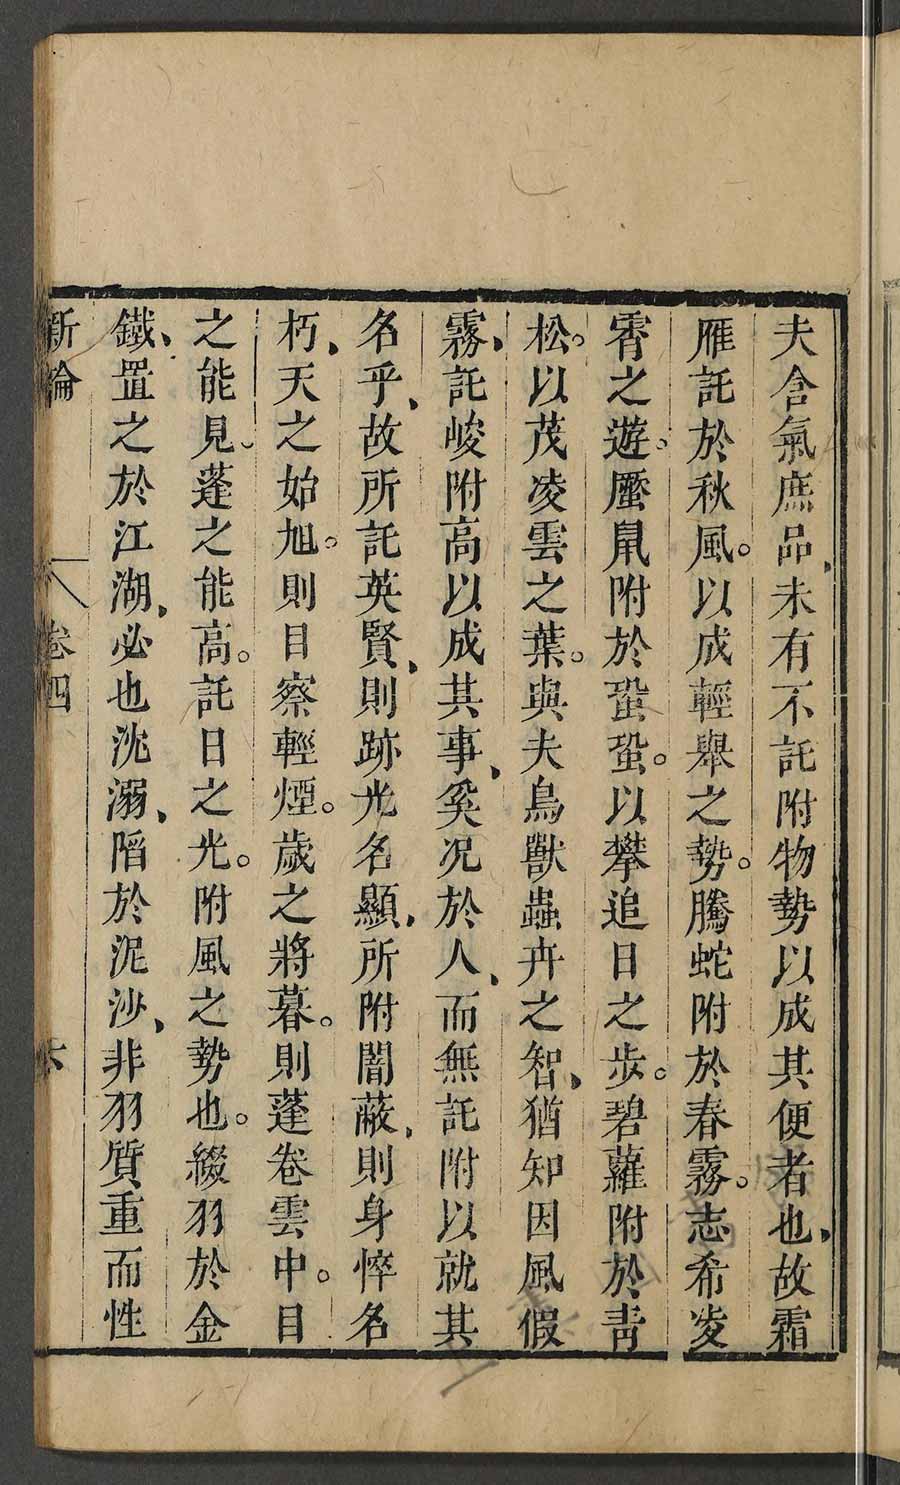 夫含氣庶品、未有不託附物勢以成其便者也、故霜
雁託於秋風。以成輕舉之勢。騰蛇附於春霧。志希凌
霄之遊。蹷鼠附於蛩蛩。以攀追日之步。碧蘿附於靑
松。以茂凌雲之葉。與夫鳥獸蟲卉之智、猶知因風假
霧、託峻附高以成其事、奚况於人、而無託附以就其
名乎、故所託英賢、則跡光名顯、所附闇蔽、則身悴名
朽、天之始旭。則目察輕煙。歲之將暮。則蓬卷雲中。目
之能見。蓬之能高。託日之光。附風之勢也。綴羽於金
鐵、置之於江湖、必也沈溺、陷於泥沙、非羽質重而性
新論 卷四 六